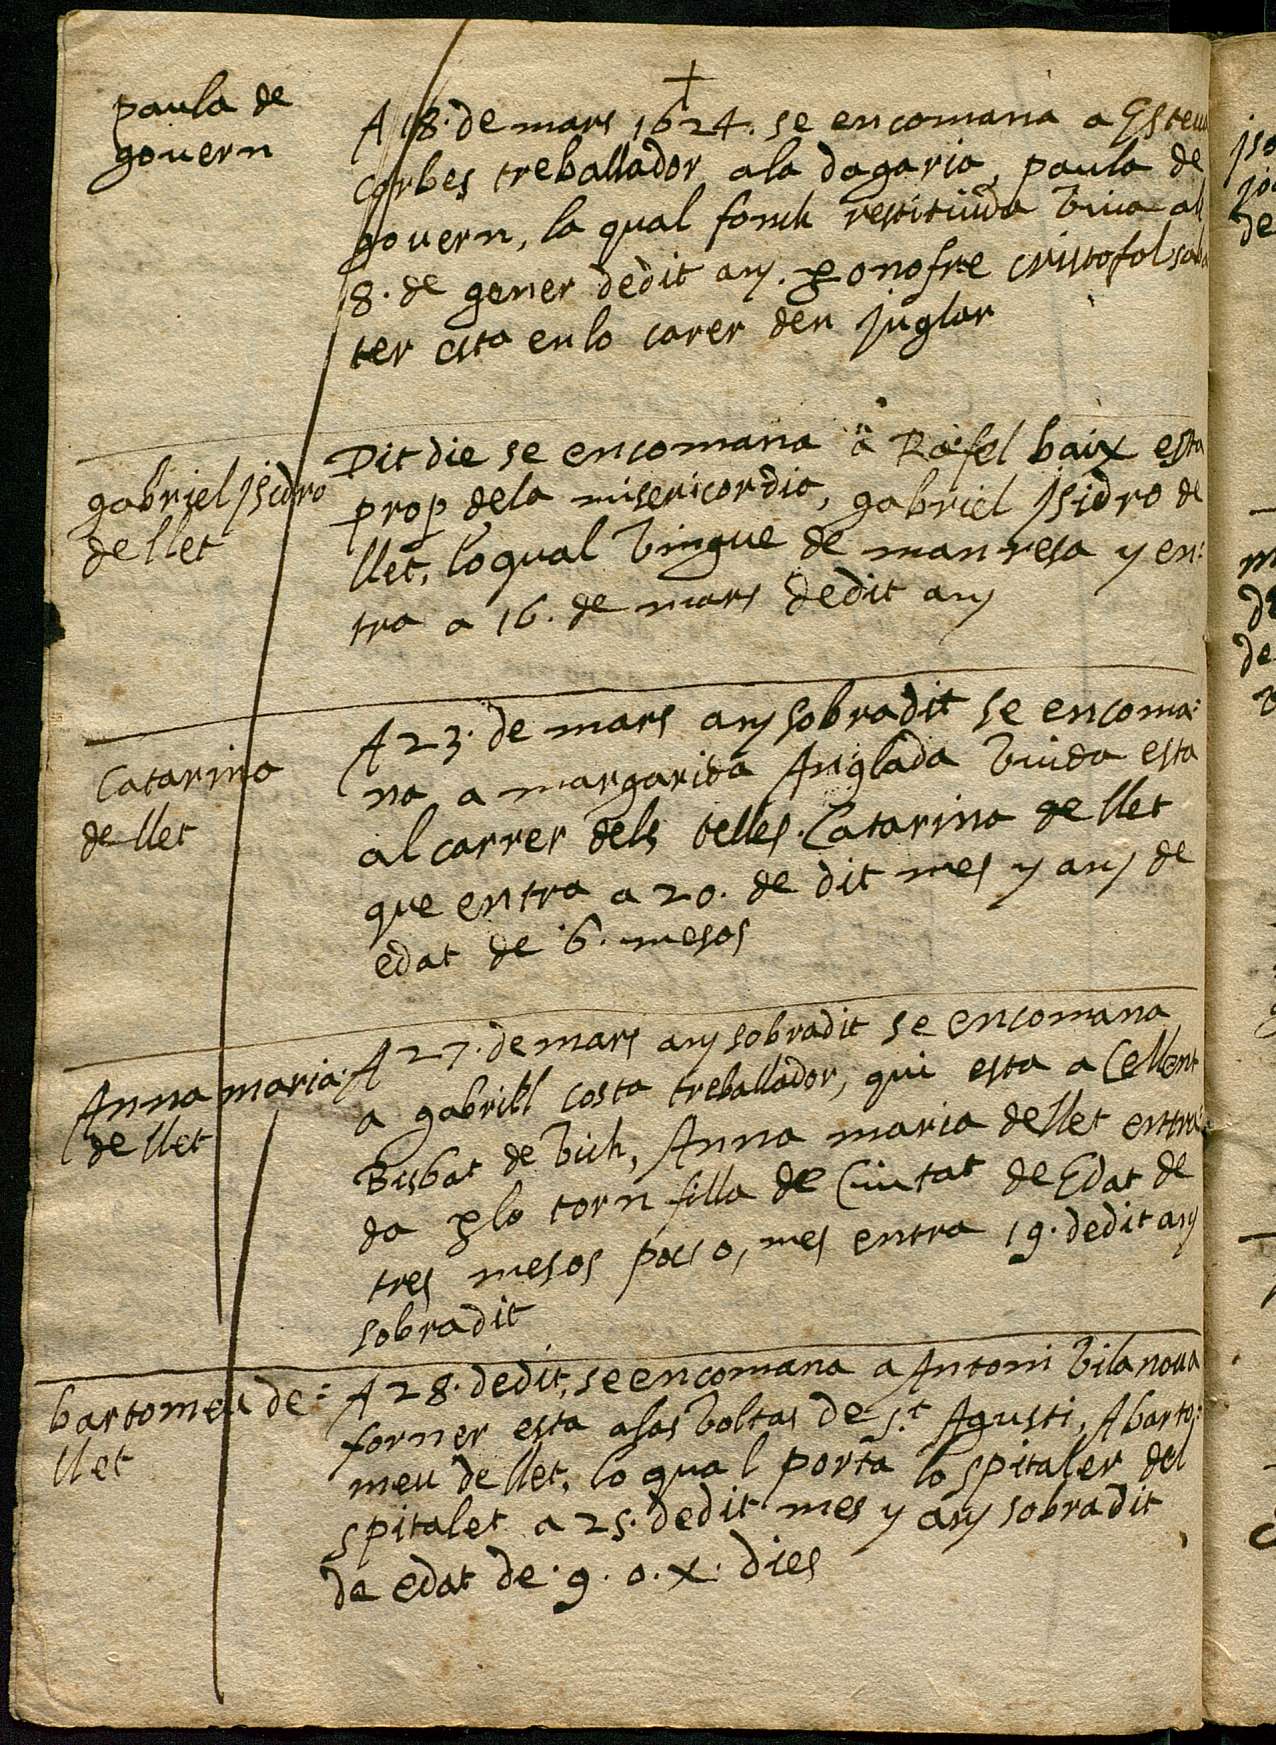 paula de
govern
A 18. de mars 1624. se encomana a Esteu
corbes treballador ala dagaria, paula de
govern, la qual fonch restituida viva als
8. de gener dedit any. p onofre cristofol saba
ter esta en lo carer den juglar
gabriel jsidro
de llet
Dit die se encomana a Rafel baix esta
prop dela misericordia, gabriel jsidro de
llet, loqual vingue de manresa y en:
tra a 16. de mars dedit any
Catarina
de llet
A 23. de mars any sobradit se encoma:
na a margarida Anglada viuda esta
al carrer dels telles. Catarina de llet
que entra a 20. de dit mes y any de
edat de 6. mesos
Anna maria
de llet
A 27. de mars any sobradit se encomana
a gabriel costa treballador, qui esta a Cellent
Bisbat de vich, Anna maria de llet entra:
da p lo torn filla de Ciutat de Edat de
tres mesos poc o, mes entra 19. dedit any
sobradit
bartomeu de:
llet
A 28. dedit, se encomana a Antoni vilanova
forner esta alas voltas de st Agusti, A barto:
meu de llet, lo qual porta lo spitaler del
spitalet a 25. dedit mes y any sobradit
de edat de. 9. o. x. dies